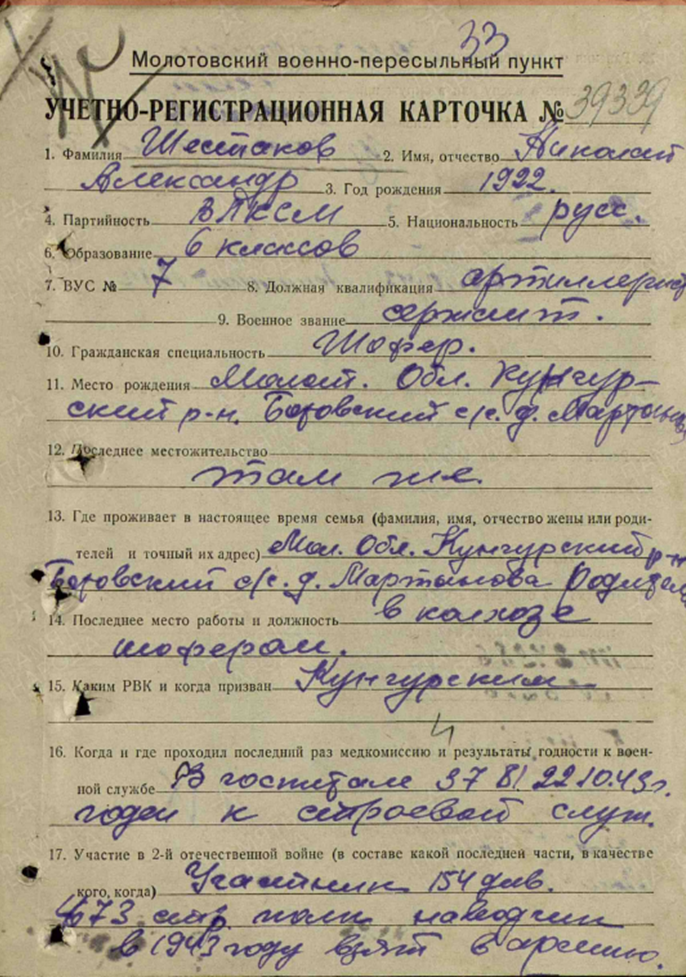 33
Молотовский военно-пересыльный пункт
УЧЕТНО-РЕГИСТРАЦИОННАЯ КАРТОЧКА № 39339
1. Фамилия Шестаков 2. Имя, отчество Николай
Александр 3. Год рождения 1922.
4. Партийность ВЛКСМ 5. Национальность русс.
6. Образование 6 классов
7. ВУС № 7 8. Должная квалификация артиллерист
9. Военное звание сержант.
10. Гражданская специальность Шофер.
11. Место рождения Молот. Обл. Кунгур-
ский р-н. Боговский с/с. д.
12. Последнее местожительство
там же.
13. Где проживает в настоящее время семья (фамилия, имя, отчество жены или роди-
телей и точный их адрес) Мол. Обл. Кунгурский р-н
Боговский с/с. д. Мартанова Родители
14. Последнее место работы и должность в колхозе
шофером.
15. Каким РВК и когда призван Кунгурским
16. Когда и где проходил последний раз медкомиссию и результаты годности к воен-
ной службе В госпитале 22.10.43г.
годен к строевой служ.
17. Участие в 2-й отечественной войне (в составе какой последней части, в качестве
кого, когда) Участник 154 див.
473 стр. полк наводчик
в 1943 году взят в армию.